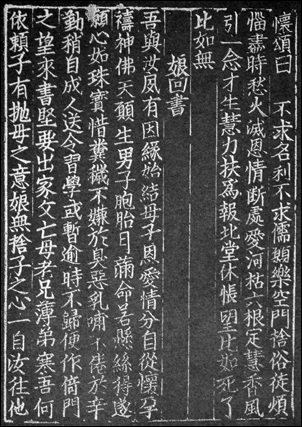 懷頌曰 不求名利不求儒願樂空門捨俗徒煩
惱盡時愁火滅恩情斷處愛河枯六根定慧香風
引一念才生慧力扶為報北堂休悵望比如死了
比如無
娘回書
吾與汝夙有因緣始結母子恩愛情分自從懷孕
禱神佛天願生男子胞胎日滿命若懸絲得遂
願心如珠寶惜糞穢不嫌於臭惡乳哺不倦於辛
勤稍自成人送令習學或暫逾時不歸便作倚門
之望來書堅要出家父亡母老兄薄弟寒吾何
依賴子有拋母之意娘無捨子之心一自汝往他